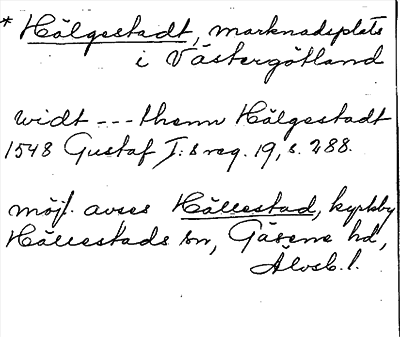 * Hälgestadt, marknadsplats
i Västergötland
widt --- thenn Hälgestadt
1548 Gustaf I:s reg. 19, s. 288.
möjl. avses Hällestad, kyrkby
Hällestads sn, Gäsene hd,
Älvsb. l.